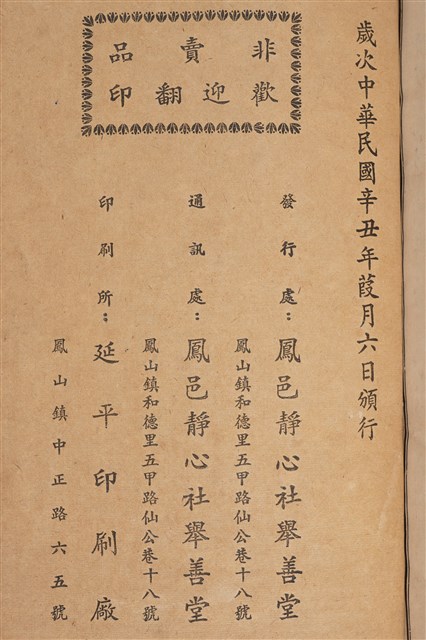 歲次中華民國辛丑年葭月六日頒行
非賣品
歡迎翻印
發行處：鳳邑靜心社舉善堂
鳳山鎮和德里五甲路仙公巷十八號
通訊處：鳳邑靜心社舉善堂
鳳山鎮和德里五甲路仙公巷十八號
印刷所：延平印刷廠
鳳山鎮中正路六五號